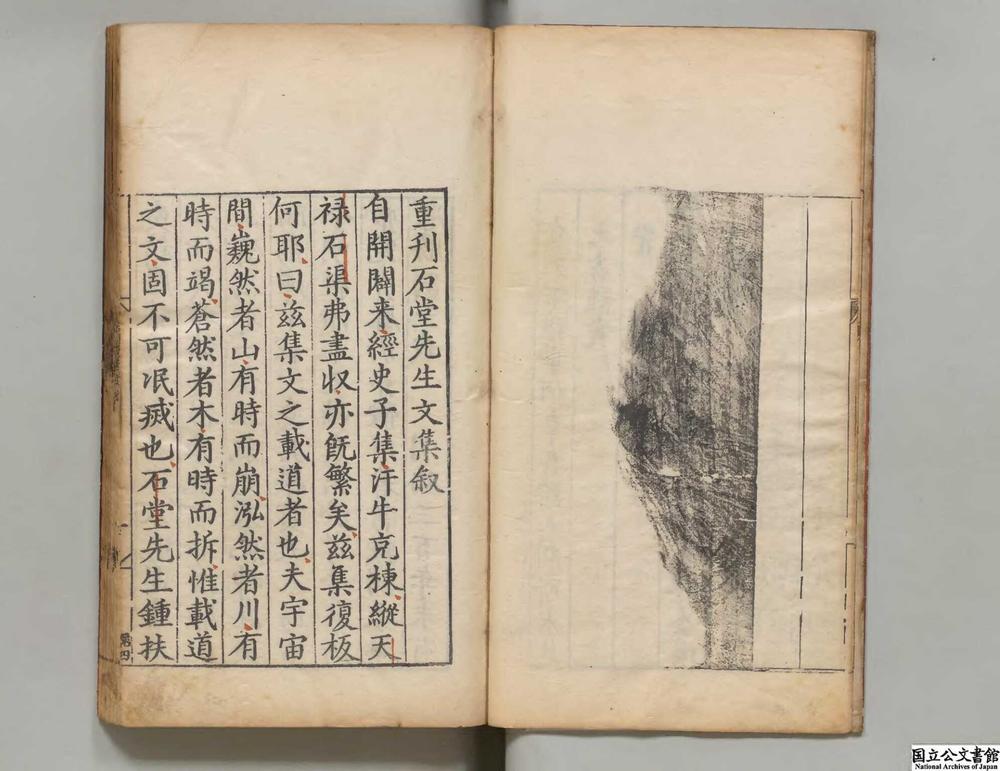 重刊石堂先生文集叙
自開闢来經史子集汗牛充棟縱天
禄石渠弗盡収亦既繁矣茲集復板
何耶曰茲集文之載道者也夫宇宙
間巍然者山有時而崩泓然者川有
時而竭蒼然者木有時而拆惟載道
之文固不可冺㓕也石堂先生鍾扶
第四
国立公文書館
National Archives of Japan